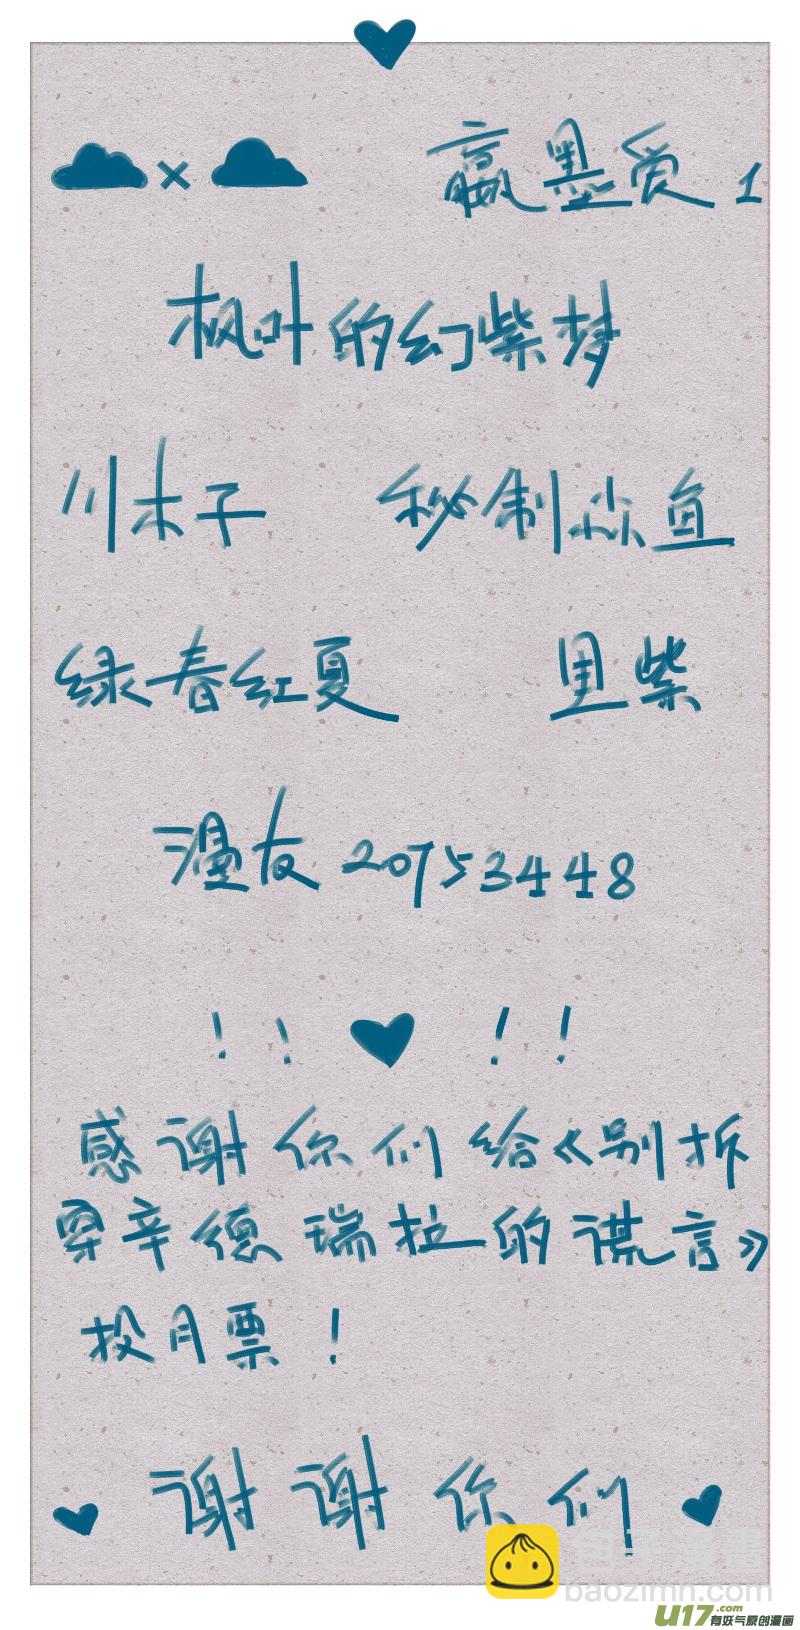 × 嬴墨爱1
枫叶的幻紫梦
川木子 秘制焱鱼
绿春红夏 里紫
漫友20753448
!! !!
感谢你们给《别拆
穿辛德瑞拉的谎言》
投月票!
谢谢你们
baozimh.com
U17.com
有妖气原创漫画